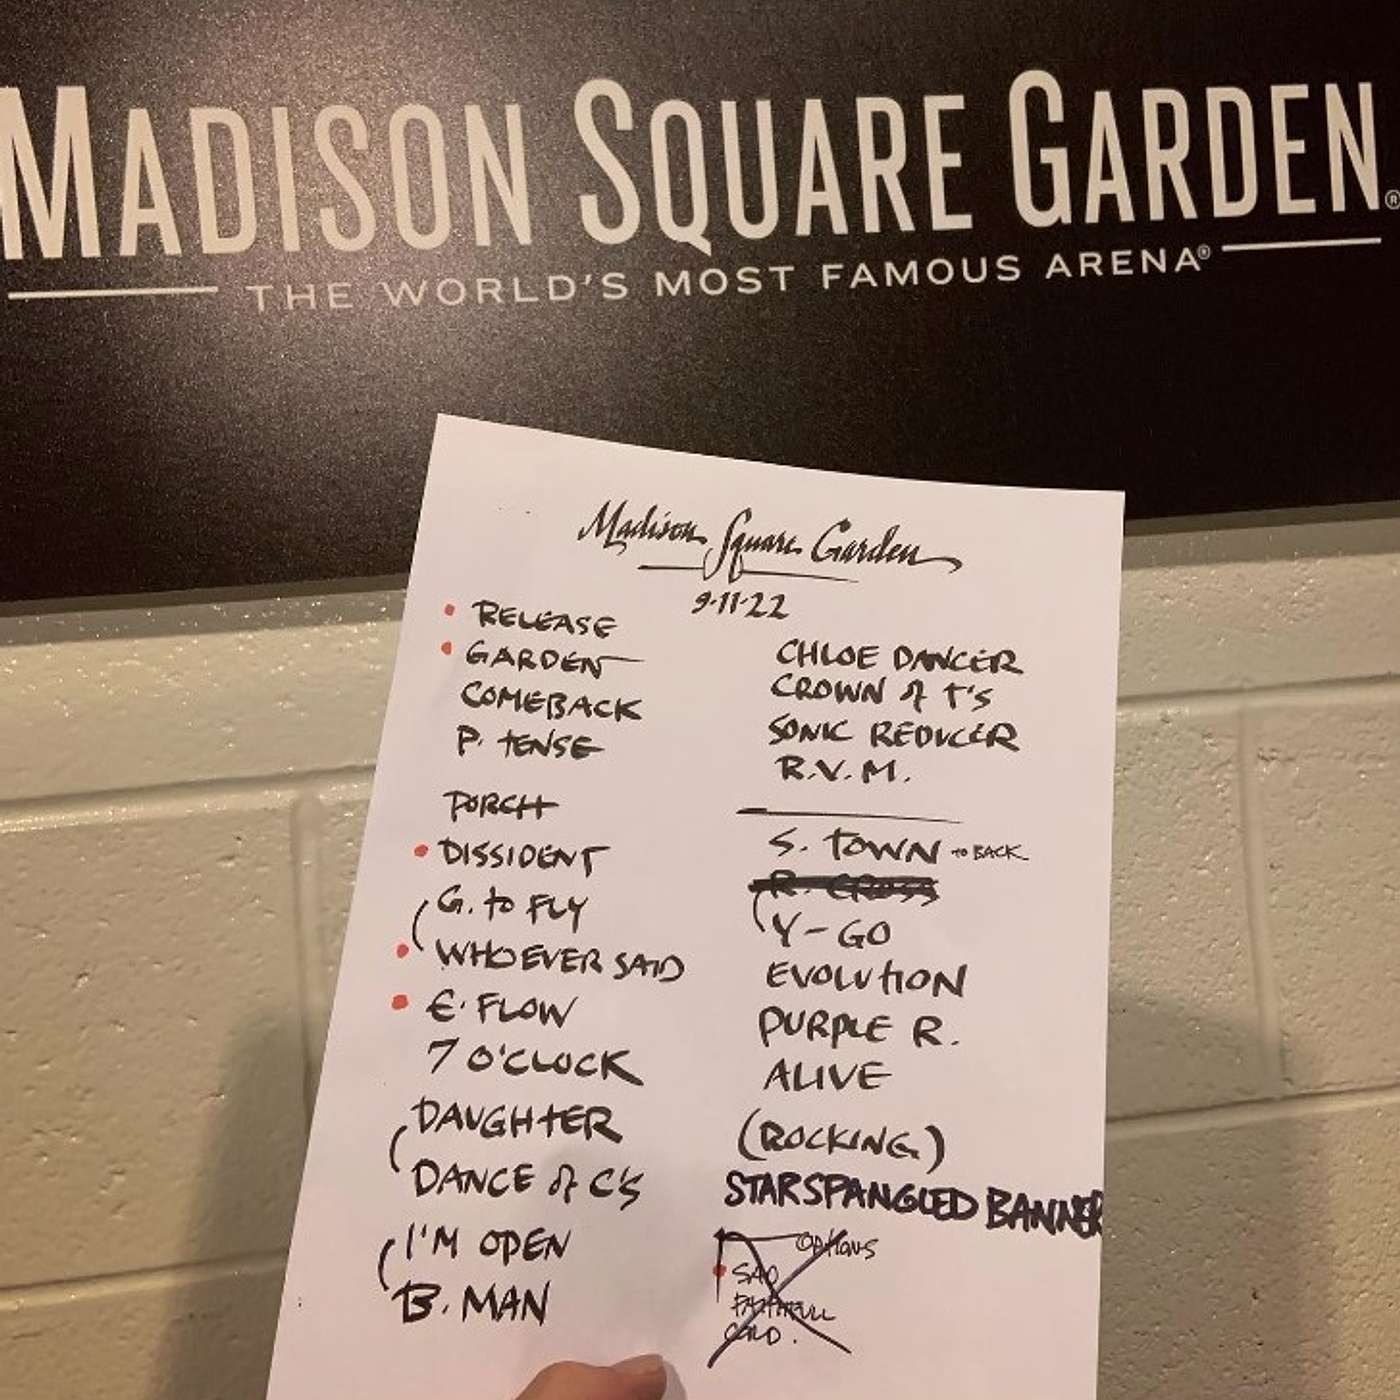 MADISON SQUARE GARDEN®
THE WORLD'S MOST FAMOUS ARENA®
Madison Square Garden
9-11-22
RELEASE
GARDEN
COMEBACK
P. TENSE
PORCH
DISSIDENT
G. to FLY
WHOEVER SAID
E. FLOW
7 O'CLOCK
DAUGHTER
DANCE of C'S
I'M OPEN
B. MAN
CHLOE DANCER
CROWN of T'S
SONIC REDUCER
R.V.M.
S. TOWN to BACK
R. CROSS
Y-GO
EVOLUTION
PURPLE R.
ALIVE
(ROCKING)
STARSPANGLED BANNER
OPTIONS
SAD
FAITHFULL
COLD.